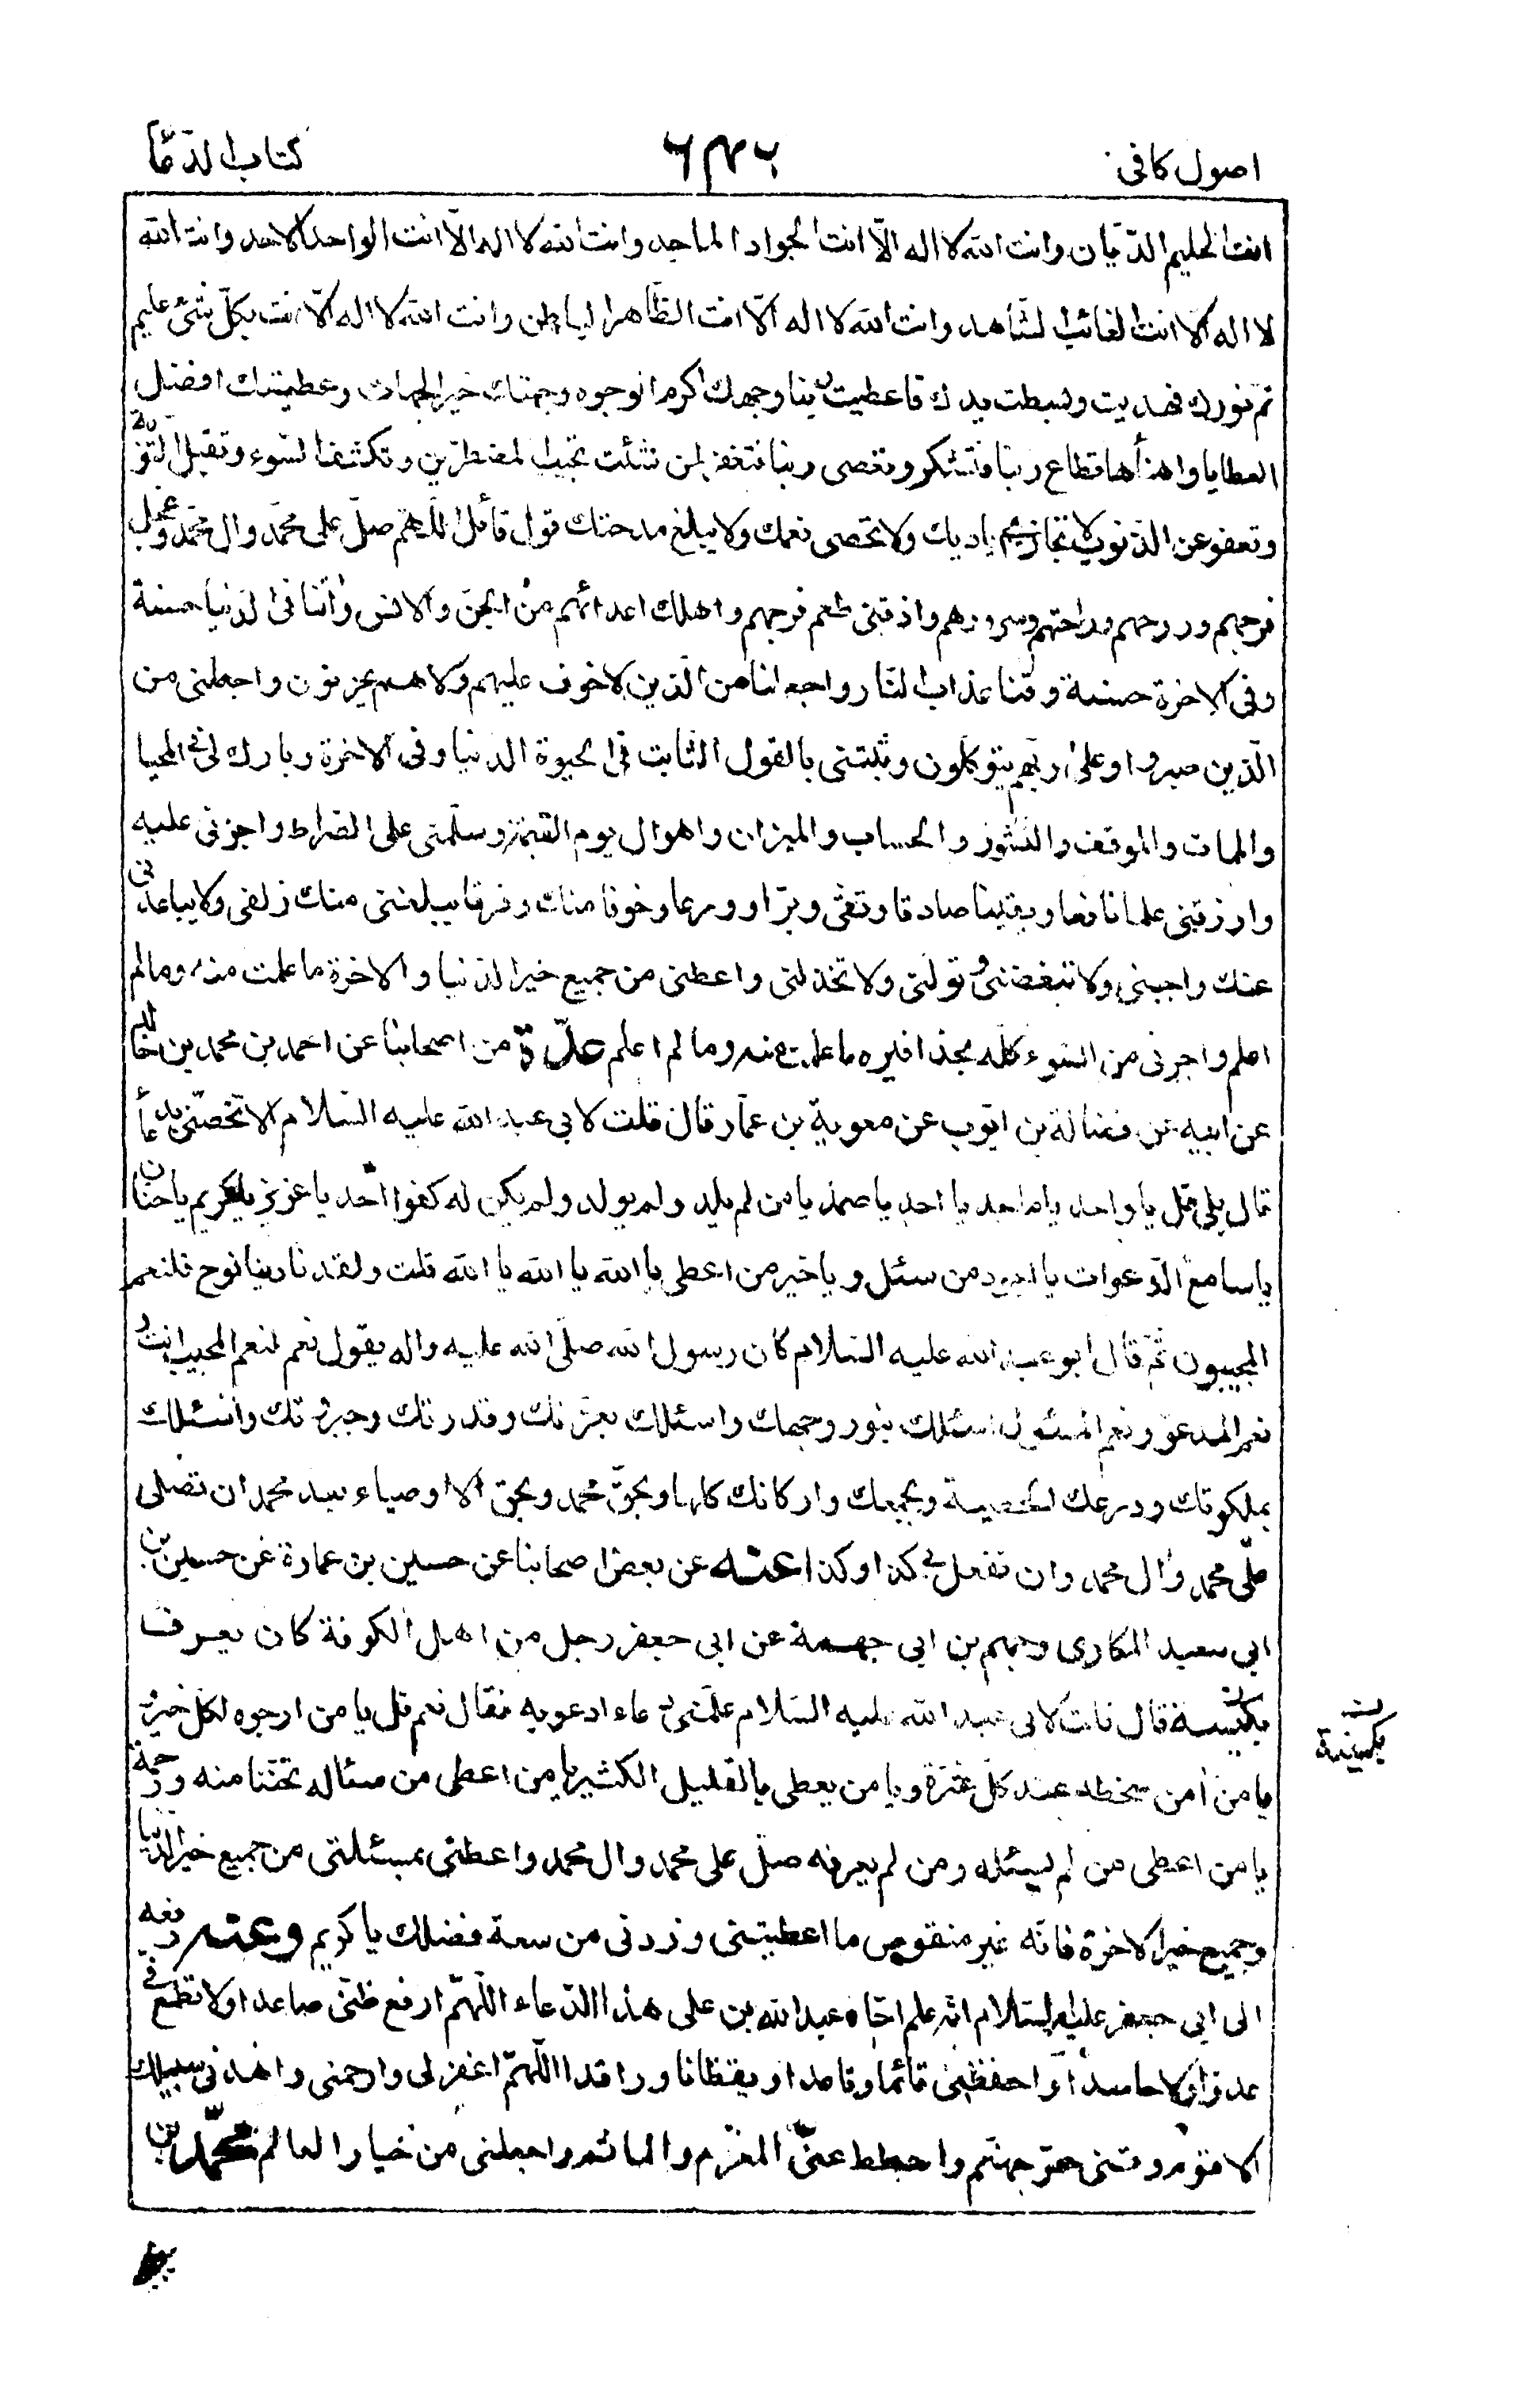 اصول كافى
٦٣٢
كتاب الدّعاء
انت الحليم الدّيان وانت الله لا اله الّا انت الجواد الماجد وانت الله لا اله الّا انت الواحد الاحد وانت الله
لا اله الّا انت الغائب الشّاهد وانت الله لا اله الّا انت الظّاهر الباطن وانت الله لا اله الّا انت بكلّ شىء عليم
تمّ نورك فهديت وبسطت يدك فاعطيت ربنا وجهك اكرم الوجوه وجهتك خير الجهات وعطيتك افضل
العطايا واهنأها تطاع ربنا فتشكر وتعصى ربنا فتغفر لمن شئت تجيب المضطرّين وتكشف السّوء وتقبل التّوبة
وتعفو عن الذّنوب لا تجازى اياديك ولا تحصى نعمك ولا يبلغ مدحتك قول قائل اللّهمّ صلّ على محمّد وال محمّد وعجّل
فرجهم وروحهم وراحتهم وسرورهم واذقنى طعم فرجهم واهلك اعدائهم من الجنّ والانس واتنا فى الدّنيا حسنة
وفى الاخرة حسنة وقنا عذاب النّار واجعلنا من الّذين لا خوف عليهم ولا هم يحزنون واجعلنى من
الّذين صبروا وعلى ربّهم يتوكّلون وثبّتنى بالقول الثّابت فى الحيوة الدنيا وفى الاخرة وبارك لى فى المحيا
والممات والموقف والنّشور والحساب والميزان واهوال يوم القيمة وسلّمنى على الصّراط واجزنى عليه
وارزقنى علما نافعا ويقينا صادقا وتقى وبرّا وورعا وخوفا منك وفرقا يبلغنى منك زلفى ولا يباعدنى
عنك واحببنى ولا تبغضنى وتولّنى ولا تخذلنى واعطنى من جميع خير الدّنيا والاخرة ما علمت منه وما لم
اعلم واجرنى من السّوء كلّه بحذافيره ما علمت منه وما لم اعلم عدّة من اصحابنا عن احمد بن محمد بن خالد
عن ابيه عن فضالة بن ايّوب عن معوية بن عمّار قال قلت لابى عبد الله عليه السّلام الا تخصّنى بدعاء
قال بلى قل يا واحد يا ماجد يا احد يا صمد يا من لم يلد ولم يولد ولم يكن له كفوا احد يا عزيز يا كريم يا حنّان
يا سامع الدّعوات يا اجود من سئل ويا خير من اعطى يا الله يا الله يا الله قلت ولقد نادينا نوح فلنعم
المجيبون ثمّ قال ابو عبد الله عليه السّلام كان رسول الله صلّى الله عليه واله يقول نعم لنعم المجيب انت و
نعم المدعوّ ونعم المسئول اسئلك بنور وجهك واسئلك بعزّتك وقدرتك وجبروتك واسئلك
بملكوتك ودرعك الحصينة وبجمعك واركانك كلها وبحقّ محمد وبحق الاوصياء بعد محمد ان تصلّى
على محمد وال محمد وان تفعل بى كذا وكذا عنه عن بعض اصحابنا عن حسين بن عمارة عن حسين بن
ابى سعيد المكارى وجهم بن ابى جهمة عن ابى جعفر رجل من اهل الكوفة كان يعرف
بكنيته قال قلت لابى عبد الله عليه السّلام علّمنى دعاء ادعو به فقال نعم قل يا من ارجوه لكلّ خير و
يا من امن سخطه عند كلّ عثرة ويا من يعطى بالقليل الكثير يا من اعطى من سئاله تحنّنا منه ورحمة
يا من اعطى من لم يسئله ومن لم يعرفه صلّ على محمد وال محمد واعطنى بمسئلتى من جميع خير الدّنيا
وجميع خير الاخرة فانّه غير منقوص ما اعطيتنى وزدنى من سعة فضلك يا كريم وعنه رفعه
الى ابى جعفر عليه السّلام انّه علم اخاه عبد الله بن على هذا الدّعاء اللّهمّ ارفع ظنّى صاعدا ولا تطمع فى
عدوّا ولا حاسدا واحفظنى قائما وقاعدا ويقظانا وراقدا اللّهمّ اغفر لى وارحمنى واهدنى سبيلك
الاقوم وقنى حرّ جهنّم واحطط عنّى المغرم والماثم واجعلنى من خيار العالم محمّد بن